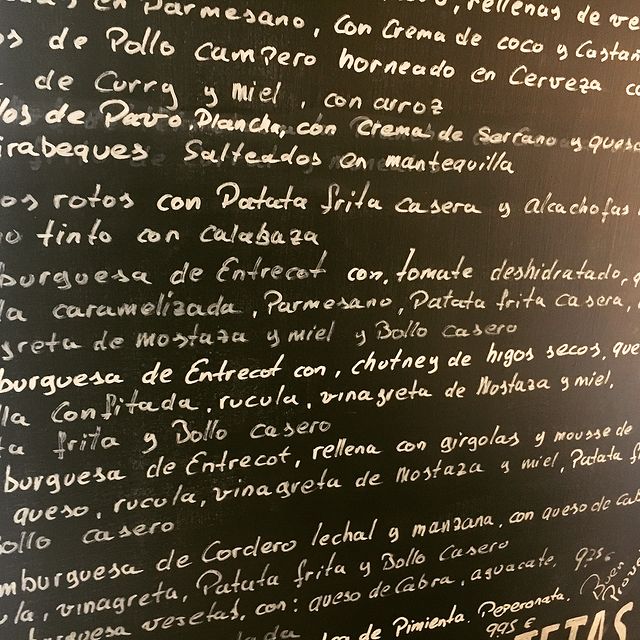 en Parmesano, con Crema de coco y Castañ
os de Pollo campero horneado en Cerveza co
de Curry y miel, con arroz
los de Pavo, Plancha, con crema de Serrano y queso
irabeques Salteados en mantequilla
os rotos con Patata frita casera y alcachofas
o tinto con calabaza
burguesa de Entrecot con, tomate deshidratado, q
la caramelizada, Parmesano, Patata frita casera,
greta de mostaza y miel y Bollo casero
burguesa de Entrecot con, chutney de higos secos, que
lla Confitada, rucula, vinagreta de Mostaza y miel,
ta frita y Bollo casero
burguesa de Entrecot, rellena con girgolas y mousse de
queso, rucula, vinagreta de Mostaza y miel, Patata f
Bollo casero
mburguesa de Cordero lechal y manzana, con queso de cab
ula, vinagreta, Patata frita y Bollo Casero
burguesa vegetas, con: queso de Cabra, aguacate, 9,75€
de Pimienta. Peperonata.
9,95 €
TETAS